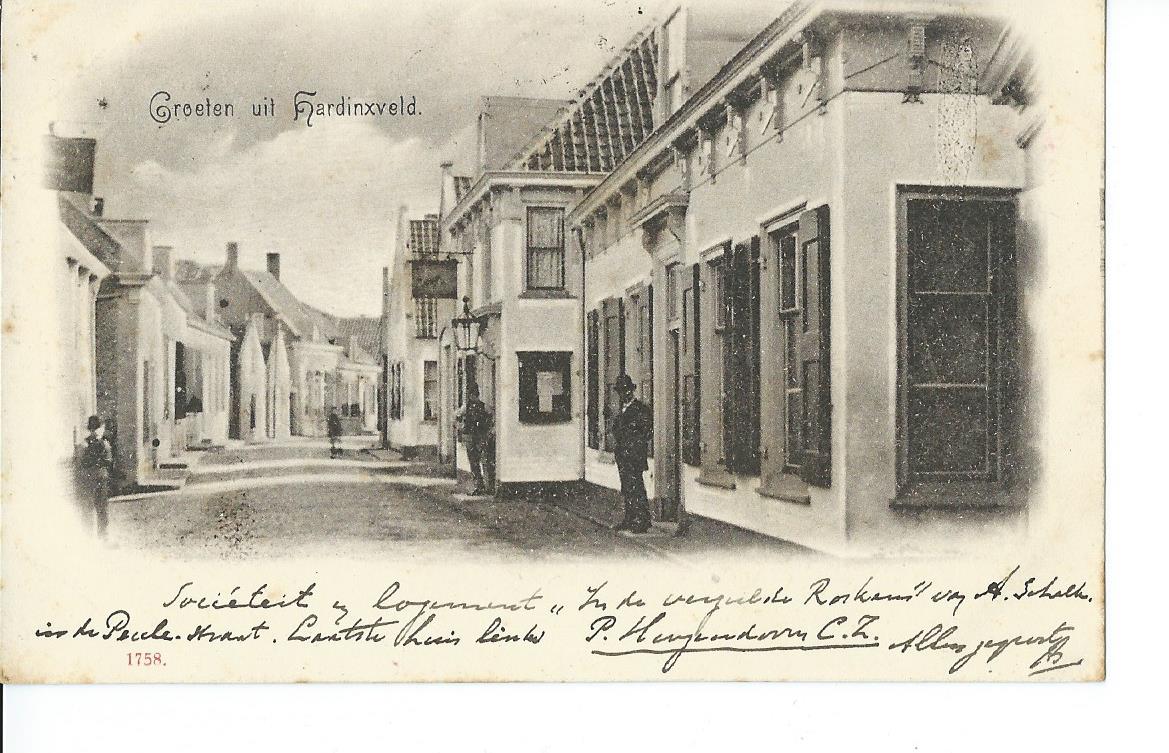 Groeten uit Hardinxveld.
Sociëteit & logement „In de vergulde Roskam" van A. Schalk.
in de Peule-straat. Laatste huis links P. Hoogendoorn C.Z. Allen gegroet
1758.